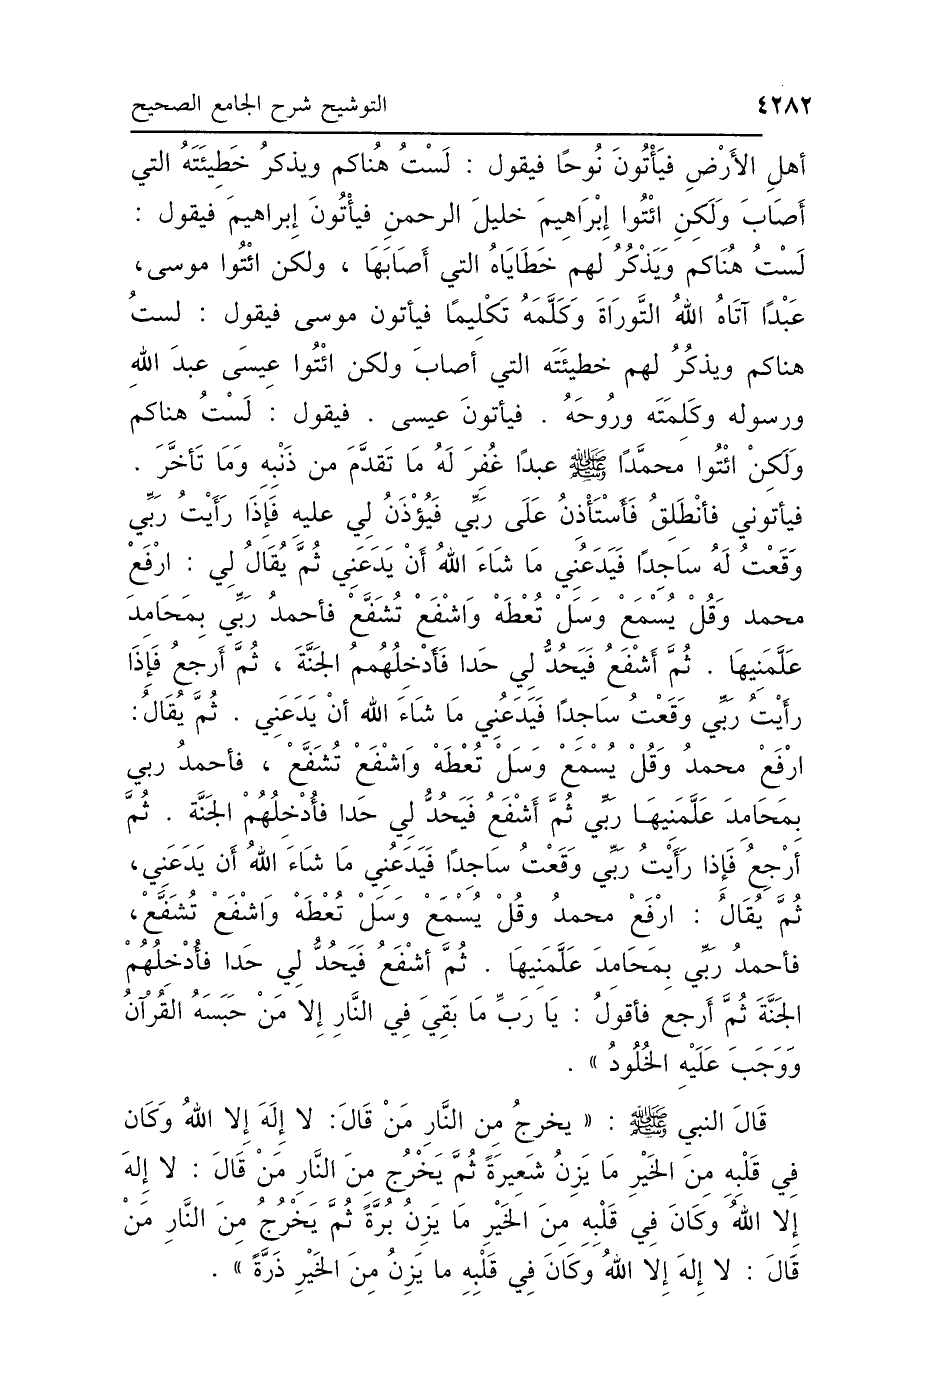 ٤٢٨٢ التوشيح شرح الجامع الصحيح
أهلِ الأَرْضِ فيَأْتُونَ نُوحًا فيقول : لَسْتُ هُناكم ويذكرُ خَطِيئَتَهُ التي
أصَابَ وَلَكِنِ ائْتُوا إبْرَاهِيمَ خليلَ الرحمنِ فيأْتُونَ إبراهيمَ فيقول :
لَسْتُ هُنَاكم وَيَذْكُرُ لهم خَطَايَاهُ التي أَصَابَهَا ، ولكن ائْتُوا موسى،
عَبْدًا آتَاهُ اللهُ التَّورَاةَ وَكَلَّمَهُ تَكْلِيمًا فيأتون موسى فيقول : لستُ
هناكم ويذكرُ لهم خطيئَتَه التي أصابَ ولكن ائْتُوا عيسَى عبدَ الله
ورسوله وكَلِمَتَه ورُوحَهُ . فيأتونَ عيسى . فيقول : لَسْتُ هناكم
وَلَكِنْ ائْتُوا محمَّدًا ﷺ عبدًا غُفِرَ لَهُ مَا تَقدَّمَ من ذَنْبِهِ وَمَا تَأخَّرَ .
فيأتوني فأنْطَلقُ فَأَسْتَأْذِنُ عَلَى رَبِّي فَيُؤْذَنُ لي عليه فَإِذَا رَأَيْتُ رَبِّي
وَقَعْتُ لَهُ سَاجِدًا فَيَدَعُنِي مَا شَاءَ اللهُ أَنْ يَدَعَنِي ثُمَّ يُقَالُ لِي : ارْفَعْ
محمد وَقُلْ يُسْمَعْ وَسَلْ تُعْطَهْ وَاشْفَعْ تُشَفَّعْ فأحمدُ رَبِّي بِمَحَامِدَ
عَلَّمَنِيهَا . ثُمَّ أَشْفَعُ فَيَحُدُّ لِي حَدا فَأَدْخِلُهُممُ الجَنَّةَ ، ثُمَّ أَرجِعُ فَإِذَا
رأَيْتُ رَبِّي وَقَعْتُ سَاجِدًا فَيَدَعُنِي مَا شَاءَ الله أنْ يَدَعَنِي . ثُمَّ يُقَالُ:
ارْفَعْ محمدُ وَقُلْ يُسْمَعْ وَسَلْ تُعْطَهْ وَاشْفَعْ تُشَفَّعْ ، فأحمدُ ربي
بِمَحَامِدَ عَلَّمَنِيهَا رَبِّي ثُمَّ أَشْفَعُ فَيَحُدُّ لِي حَدا فأُدْخِلُهُمْ الجَنَّةَ . ثُمَّ
أَرْجِعُ فَإِذا رَأَيْتُ رَبِّي وَقَعْتُ سَاجِدًا فَيَدَعُنِي مَا شَاءَ اللهُ أَن يَدَعَنِي،
ثُمَّ يُقَالُ : ارْفَعْ محمدُ وقُلْ يُسْمَعْ وَسَلْ تُعْطَهْ وَاشْفَعْ تُشَفَّعْ،
فأحمدُ رَبِّي بِمَحَامِدَ عَلَّمَنِيهَا . ثُمَّ أشْفَعُ فَيَحُدُّ لِي حَدا فأُدْخِلُهُمْ
الجَنَّةَ ثُمَّ أَرجع فأقولُ : يَا رَبِّ مَا بَقِيَ فِي النَّارِ إلا مَنْ حَبَسَهُ القُرْآنُ
وَوَجَبَ عَلَيْهِ الخُلُودُ » .
قَالَ النبي ﷺ : « يخرجُ مِن النَّارِ مَنْ قَالَ: لا إلَهَ إلا اللهُ وَكَان
فِي قَلْبِهِ مِنَ الخَيْرِ مَا يَزِنُ شَعيرَةً ثُمَّ يَخْرُج مِنَ النَّارِ مَنْ قَالَ : لا إلهَ
إلا اللهُ وَكَانَ فِي قَلْبِهِ مِنَ الخَيْرِ مَا يَزِنُ بُرَّةً ثُمَّ يَخْرُجُ مِنَ النَّارِ مَنْ
قَالَ : لا إلهَ إلا اللهُ وكَانَ فِي قَلْبِهِ ما يَزِنُ مِنَ الخَيْرِ ذَرَّةً » .